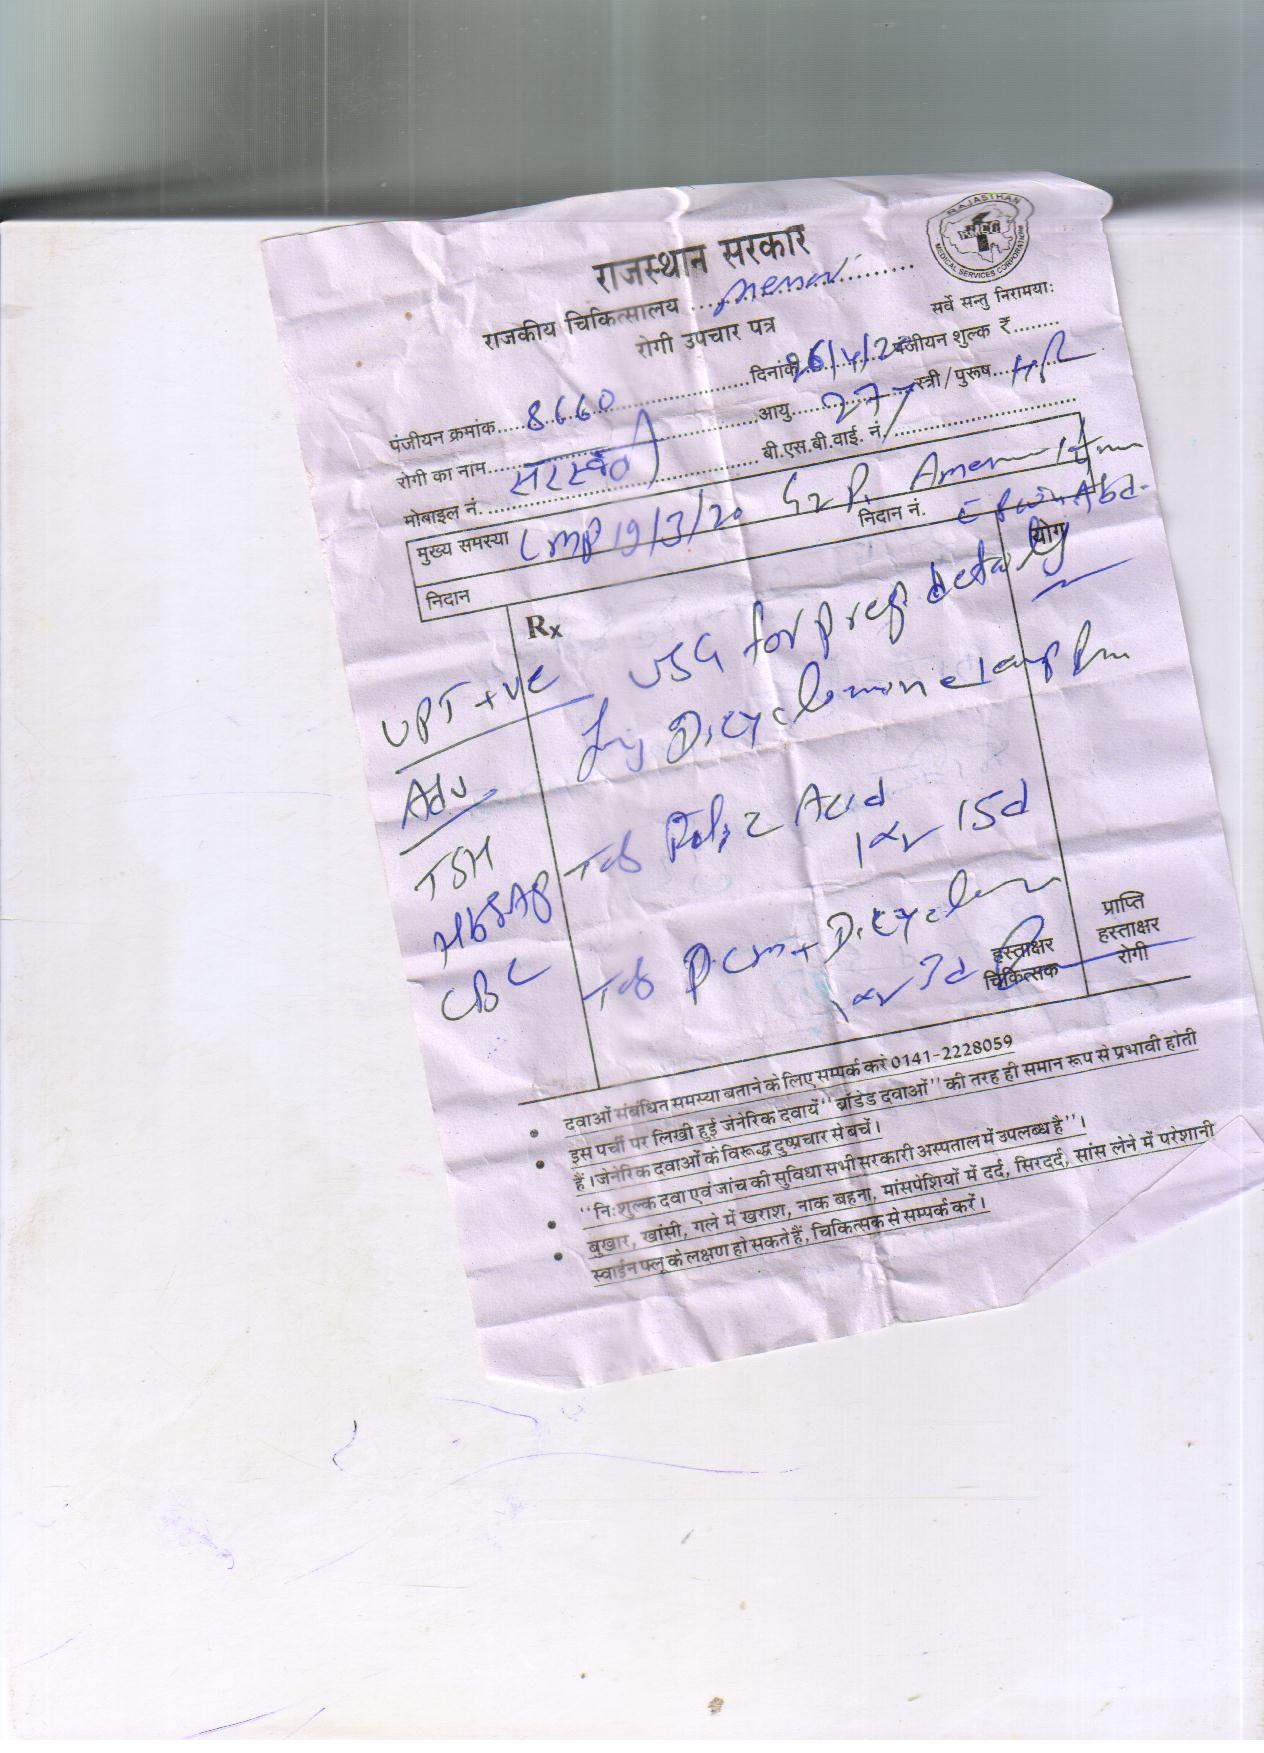 राजस्थान सरकार
RAJASTHAN
MEDICAL SERVICES CORPORATION
राजकीय चिकित्सालय
सर्वे सन्तु निरामया:
रोगी उपचार पत्र
पंजीयन क्रमांक 8660 दिनांक 26/4/20 पंजीयन शुल्क ₹
रोगी का नाम सरस्वती आयु 27 स्त्री/पुरूष
मोबाइल नं. बी.एस.बी.वाई. नं.
मुख्य समस्या LMP 19/3/20 G2P1
निदान निदान नं. योग
Rx
UPT +ve USG for preg
Inj Dicyclomine 1 amp
Adv
TSH Tab Folic Acid
1 15d
HBSAg
CBC Tab PCM + Dicyclomine
3d
हस्ताक्षर चिकित्सक
प्राप्ति हस्ताक्षर रोगी
• दवाओं संबंधित समस्या बताने के लिए सम्पर्क करें 0141-2228059
• इस पर्ची पर लिखी हुई जेनेरिक दवायें "ब्रांडेड दवाओं" की तरह ही समान रूप से प्रभावी होती
हैं। जेनेरिक दवाओं के विरूद्ध दुष्प्रचार से बचें।
• "नि:शुल्क दवा एवं जांच की सुविधा सभी सरकारी अस्पताल में उपलब्ध है"।
• बुखार, खांसी, गले में खराश, नाक बहना, मांसपेशियों में दर्द, सिरदर्द, सांस लेने में परेशानी
स्वाईन फ्लू के लक्षण हो सकते हैं, चिकित्सक से सम्पर्क करें।